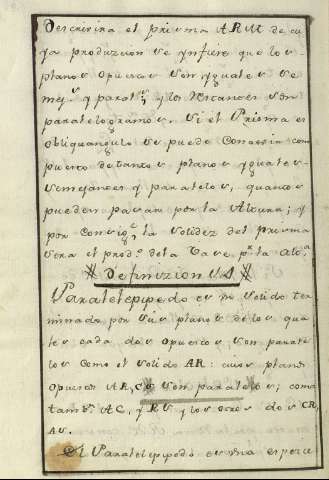 Descrivira el prisma ARM de cu
ya produzcion se ynfiere que los
planos opuestos son yguales se
mej.s y paral.s y los restantes son
paralelogramos. Si el Prisma es
obliquangulo se puede Conocer in com
puesto de tantos planos yguales
semejantes y paralelos, quantos
pueden pasar por la Altura; y
por Consig.te la solidez del prisma
sera el prod.o de la Base p.r la Alt.a
Definizion
Paralelepipedo es un solido ter
minado por seis planos de los qua
les cada dos opuestos son parale
los como el solido AR: cuios planos
opuestos AR, CS son paralelos; como
tamb.n AC, y RV y los otros dos CR,
AV.
El Paralelepipedo es una especie